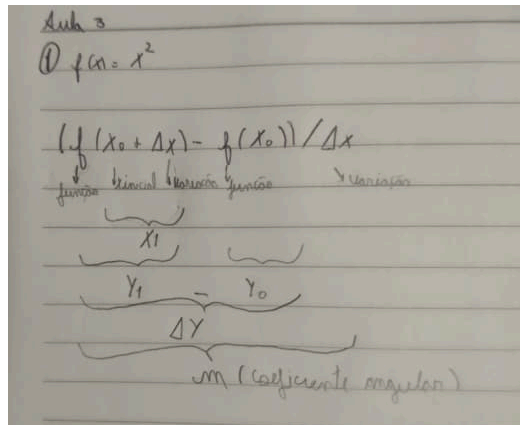 Aula 3
① f(x) = x²
(f (X₀ + Δx) - f (X₀)) / Δx
função inicial variação função variação
X1
Y1 - Y0
ΔY
m (coeficiente angular)